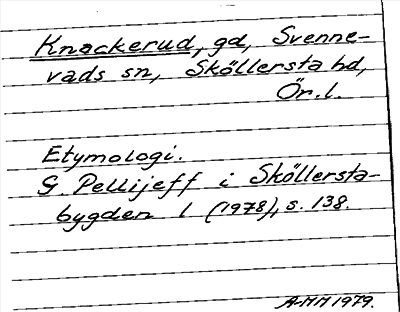 Knackerud, gd, Svenne-
vads sn, Sköllersta hd,
Ör. l.
Etymologi.
G Pellijeff i Sköllersta-
bygden 1 (1978), s. 138.
A-MH 1979.